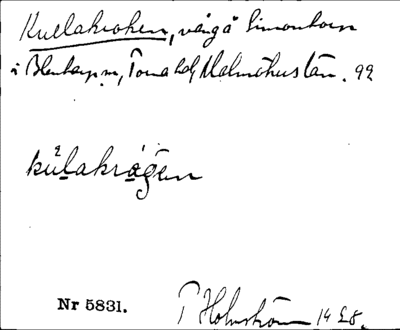 Kullakroken, väng å Simontorp
i Blentarp sn, Torna hd, Malmöhus län. 92
kúlakrågen
Nr 5831. P Holmström 1428.